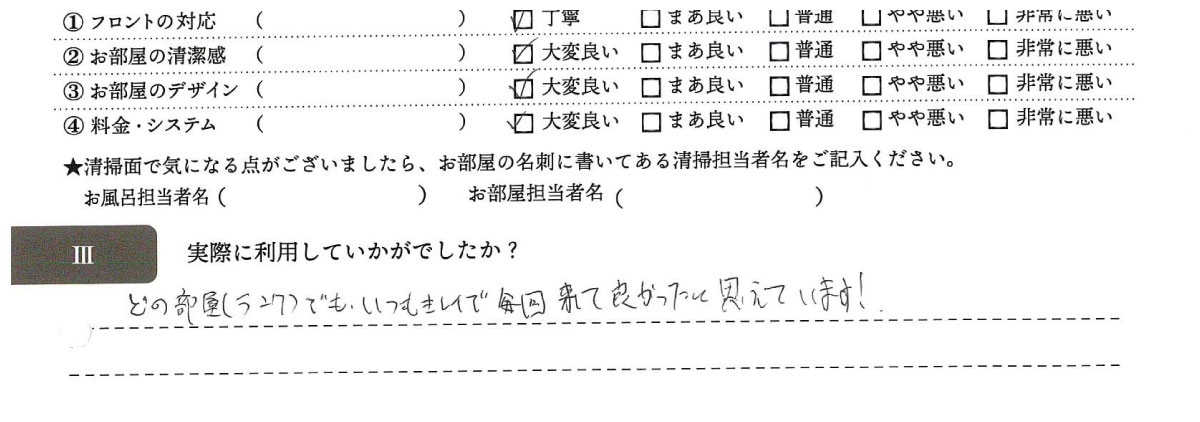 ① フロントの対応 ( ) ☑ 丁寧 □ まあ良い □ 普通 □ やや悪い □ 非常に悪い
② お部屋の清潔感 ( ) ☑ 大変良い □ まあ良い □ 普通 □ やや悪い □ 非常に悪い
③ お部屋のデザイン ( ) ☑ 大変良い □ まあ良い □ 普通 □ やや悪い □ 非常に悪い
④ 料金・システム ( ) ☑ 大変良い □ まあ良い □ 普通 □ やや悪い □ 非常に悪い
★清掃面で気になる点がございましたら、お部屋の名刺に書いてある清掃担当者名をご記入ください。
お風呂担当者名 ( ) お部屋担当者名 ( )
III 実際に利用していかがでしたか？
どの部屋(ランク)でも、いつもキレイで毎回来て良かったと思えています!